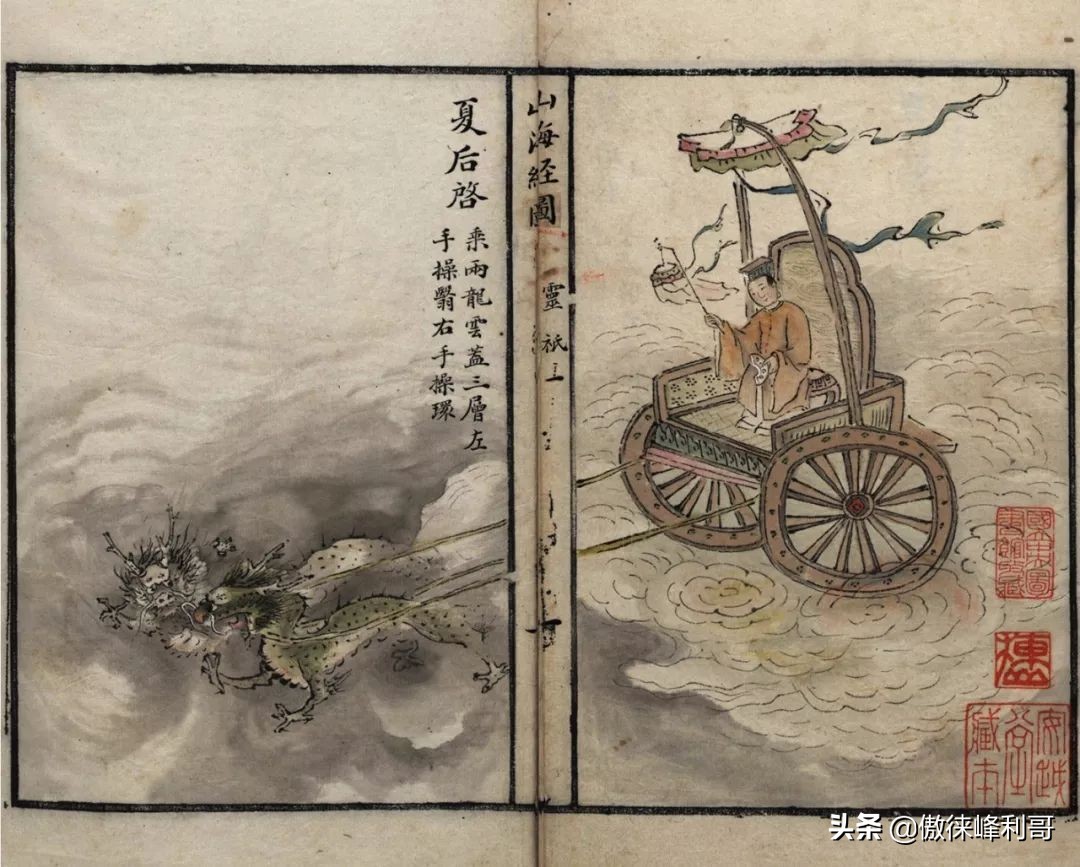 山海経圖
靈祇
夏后啓
乗兩龍雲蓋三層左
手操翳右手操環
安越
堂
藏本
头条 @傲徕峰利哥